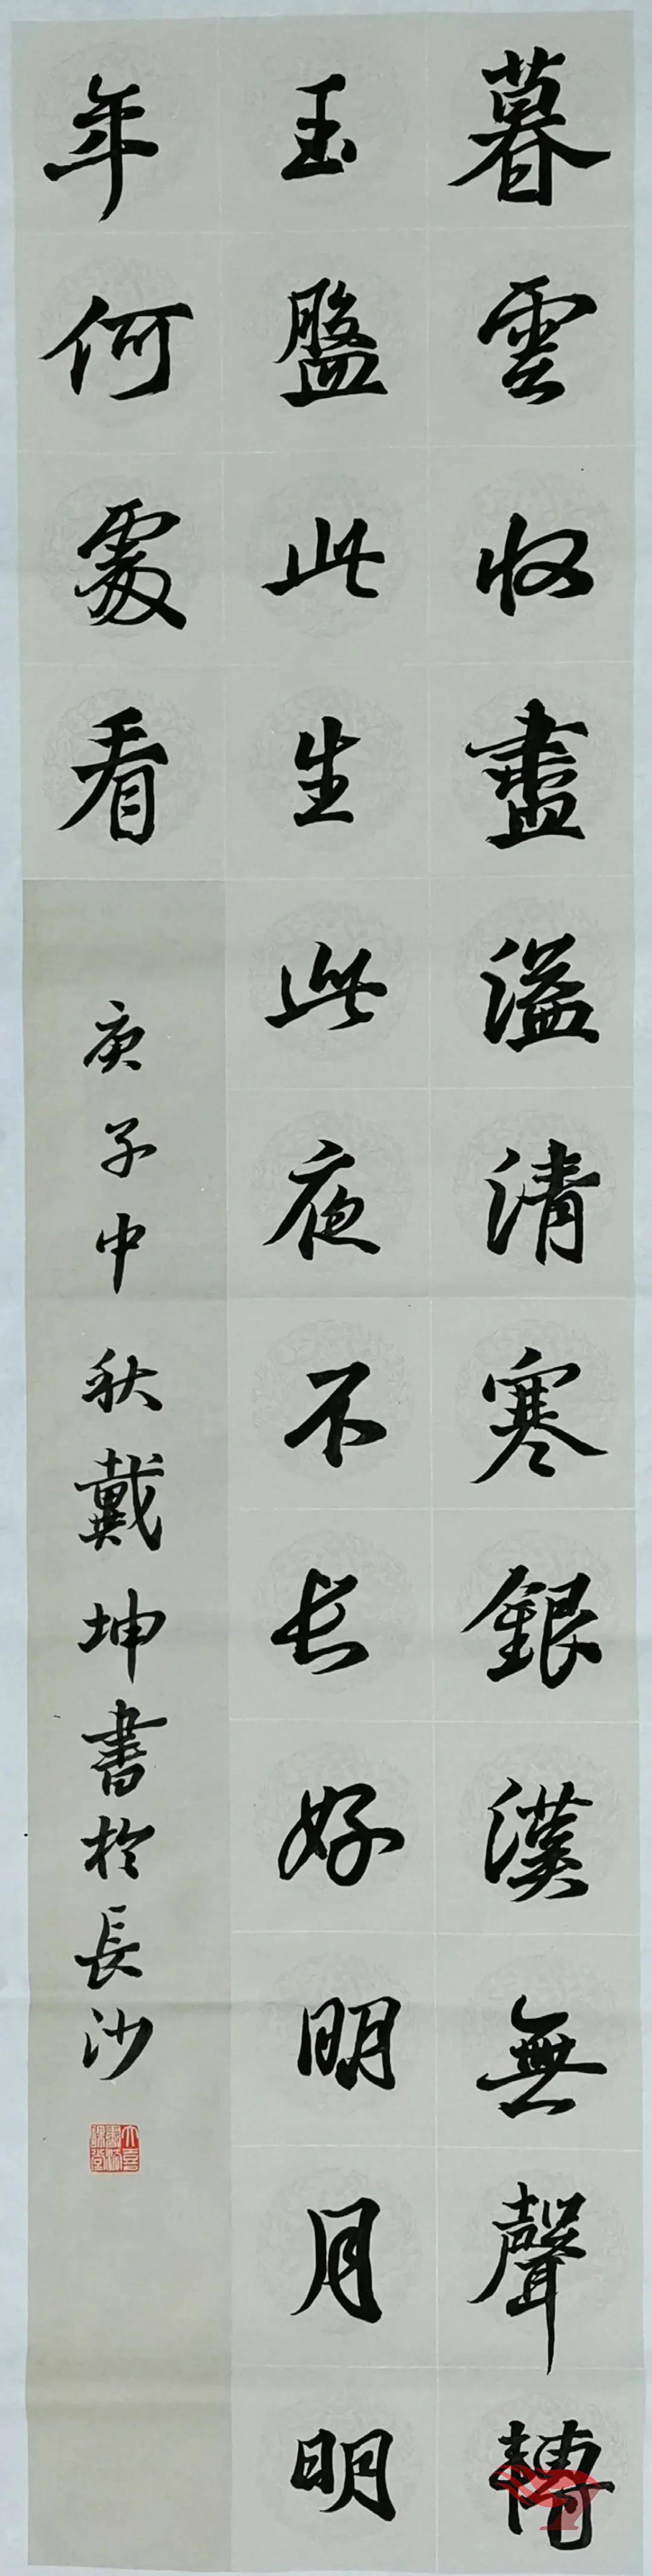 暮雲收盡溢清寒銀漢無聲轉
玉盤此生此夜不长好明月明
年何處看
庚子中秋戴坤書於長沙